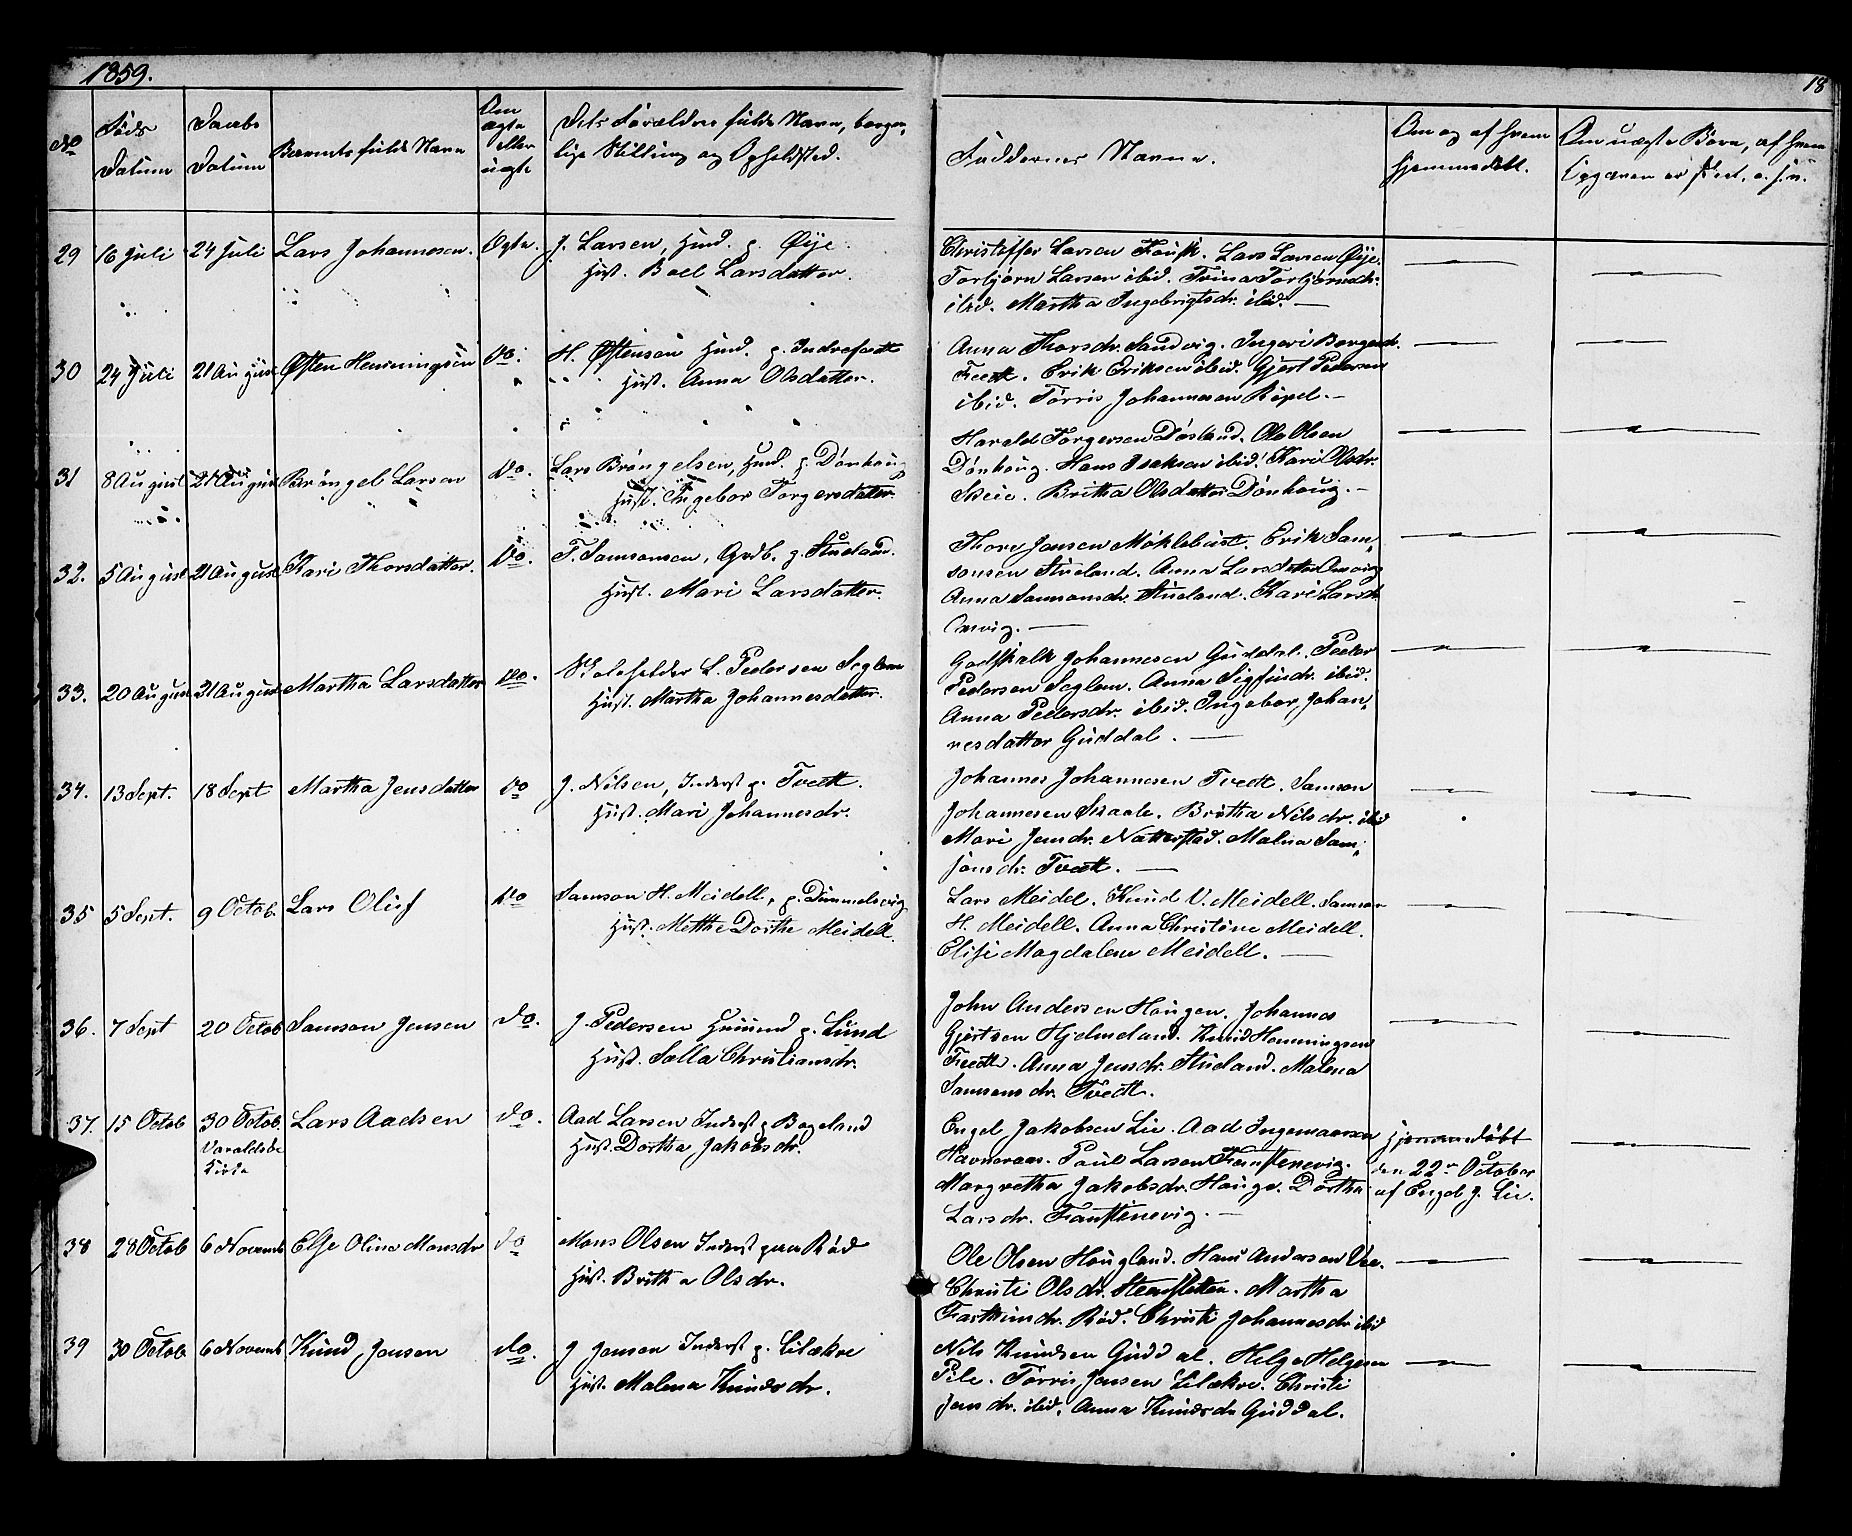 1859.
18
No
Føds
Datum
Daabs
Datum
Barnets fulde Navn
Om
ægte
eller
uægte
Dets Forældres fulde Navn, borger-
lige Stilling og Opholdsted.
Faddernes Navne.
Om og af hvem
hjemmedøbt.
Om uægte Børn, af hvem
29 16 Juli 24 Juli Lars Johannesen. Ægte. J. Larsen, Huusd. p. Øije.
Hust. Boel Larsdatter.
Christoffer Larsen Fausk. Lars Larsen Øije.
Torbjørn Larsen ibid. Trina Torbjørnsdr.
ibid. Martha Ingebrigtsdr. ibid. —
30 24 Juli 21 August Østen Henningsen Do. H. Østensen Huusd. p. Indrefædt
Hust. Anna Olsdatter.
Anna Thorsdr. Sandvig. Ingeri
Fædt. Erik Eriksen ibid. Gjert Pedersen
ibid. Tørris Johannesen Røpel. —
31 8 August 21 August Brøngel Larsen Do. Lars Brøngelsen, Huusd. p. Dønhoug
Hust. Ingebor Torgersdatter
Harald Torgersen Døsland. Ole Olsen
Dønhoug. Hans Isaksen ibid. Kari Olsdr.
Skeie. Britha Olsdatter Dønhoug. —
32. 5 August 21 August Kari Thorsdatter. Do. T. Samsonsen, Grdb. p. Stueland.
Hust. Mari Larsdatter.
Thore Jensen Møklebust. Erik Sam-
sonsen Stueland. Anna Larsdatter Omvig
Anna Samsonsdr. Stueland. Kari Larsdr.
Omvig. —
33. 20 August 21 August Martha Larsdatter Do. Skoleholder L. Pedersen Seglem
Hust. Martha Johannesdatter.
Godskalk Johannesen Guddal. Peder
Pedersen Seglem. Anna Sigfusdr. ibid.
Anna Pedersdr. ibid. Ingebor Johan-
nesdatter Guddal. —
34. 13 Sept. 18 Sept Martha Jensdatter Do J. Nilsen, Inderst p. Tvedt.
Hust. Mari Johannesdr.
Johannes Johannesen Tvedt. Samson
Johannesen Skaale. Britha Nilsdr. ibid
Mari Jensdr. Natterstad. Malna Sam-
sonsdr. Tvedt. —
35 5 Sept. 9 Octob. Lars Oluf Do Samson H. Meidell, p. Dimmelsvig
Hust. Metthe Dorthe Meidell.
Lars Meidel. Knud V. Meidell. Samson
H. Meidell. Anna Christine Meidell.
Elise Magdalene Meidell. —
36. 7 Sept 20 Octob Samson Jensen Do. J. Pedersen Huusmd p. Lund
Hust. Sælla Christiansdr.
John Andersen Haugen. Johannes
Gjertsen Hjelmeland. Knud Henningsen
Fædt. Anna Jensdr. Stueland. Malena
Samsonsdr. Tvedt.
37. 15 Octob 30 Octob. Lars Aadsen Do. Aad Larsen Inderst p Bogeland
Varaldsøe
Kirke
Hust. Dortha Jakobsdr.
Engel Jakobsen Lie. Aad Ingemarsen
Havneraas. Paul Larsen Faustenevig.
Margretha Jakobsdr. Hauge. Dortha
Larsdr. Faustenevig. —
Hjemmedøbt
den 22de October
af Engel J. Lie.
38 28 Octob 6 Novemb Else Olina Monsdr Do Mons Olsen Inderst paa Rød
Hust. Britha Olsdr.
Ole Olsen Hougland. Hans Andersen Vee.
Christi Olsdr. Steensletten. Martha
Farthunsdr. Rød. Christi Johannesdr ibid
39 30 Octob 6 Novemb. Knud Jensen Do. J Jensen Inderst p. Lilækre
Hust. Malena Knudsdr.
Nils Knudsen Guddal. Helge Helgesen
Pile. Tørris Jensen Lilækre. Christi
Jensdr. ibid. Anna Knudsdr Guddal.